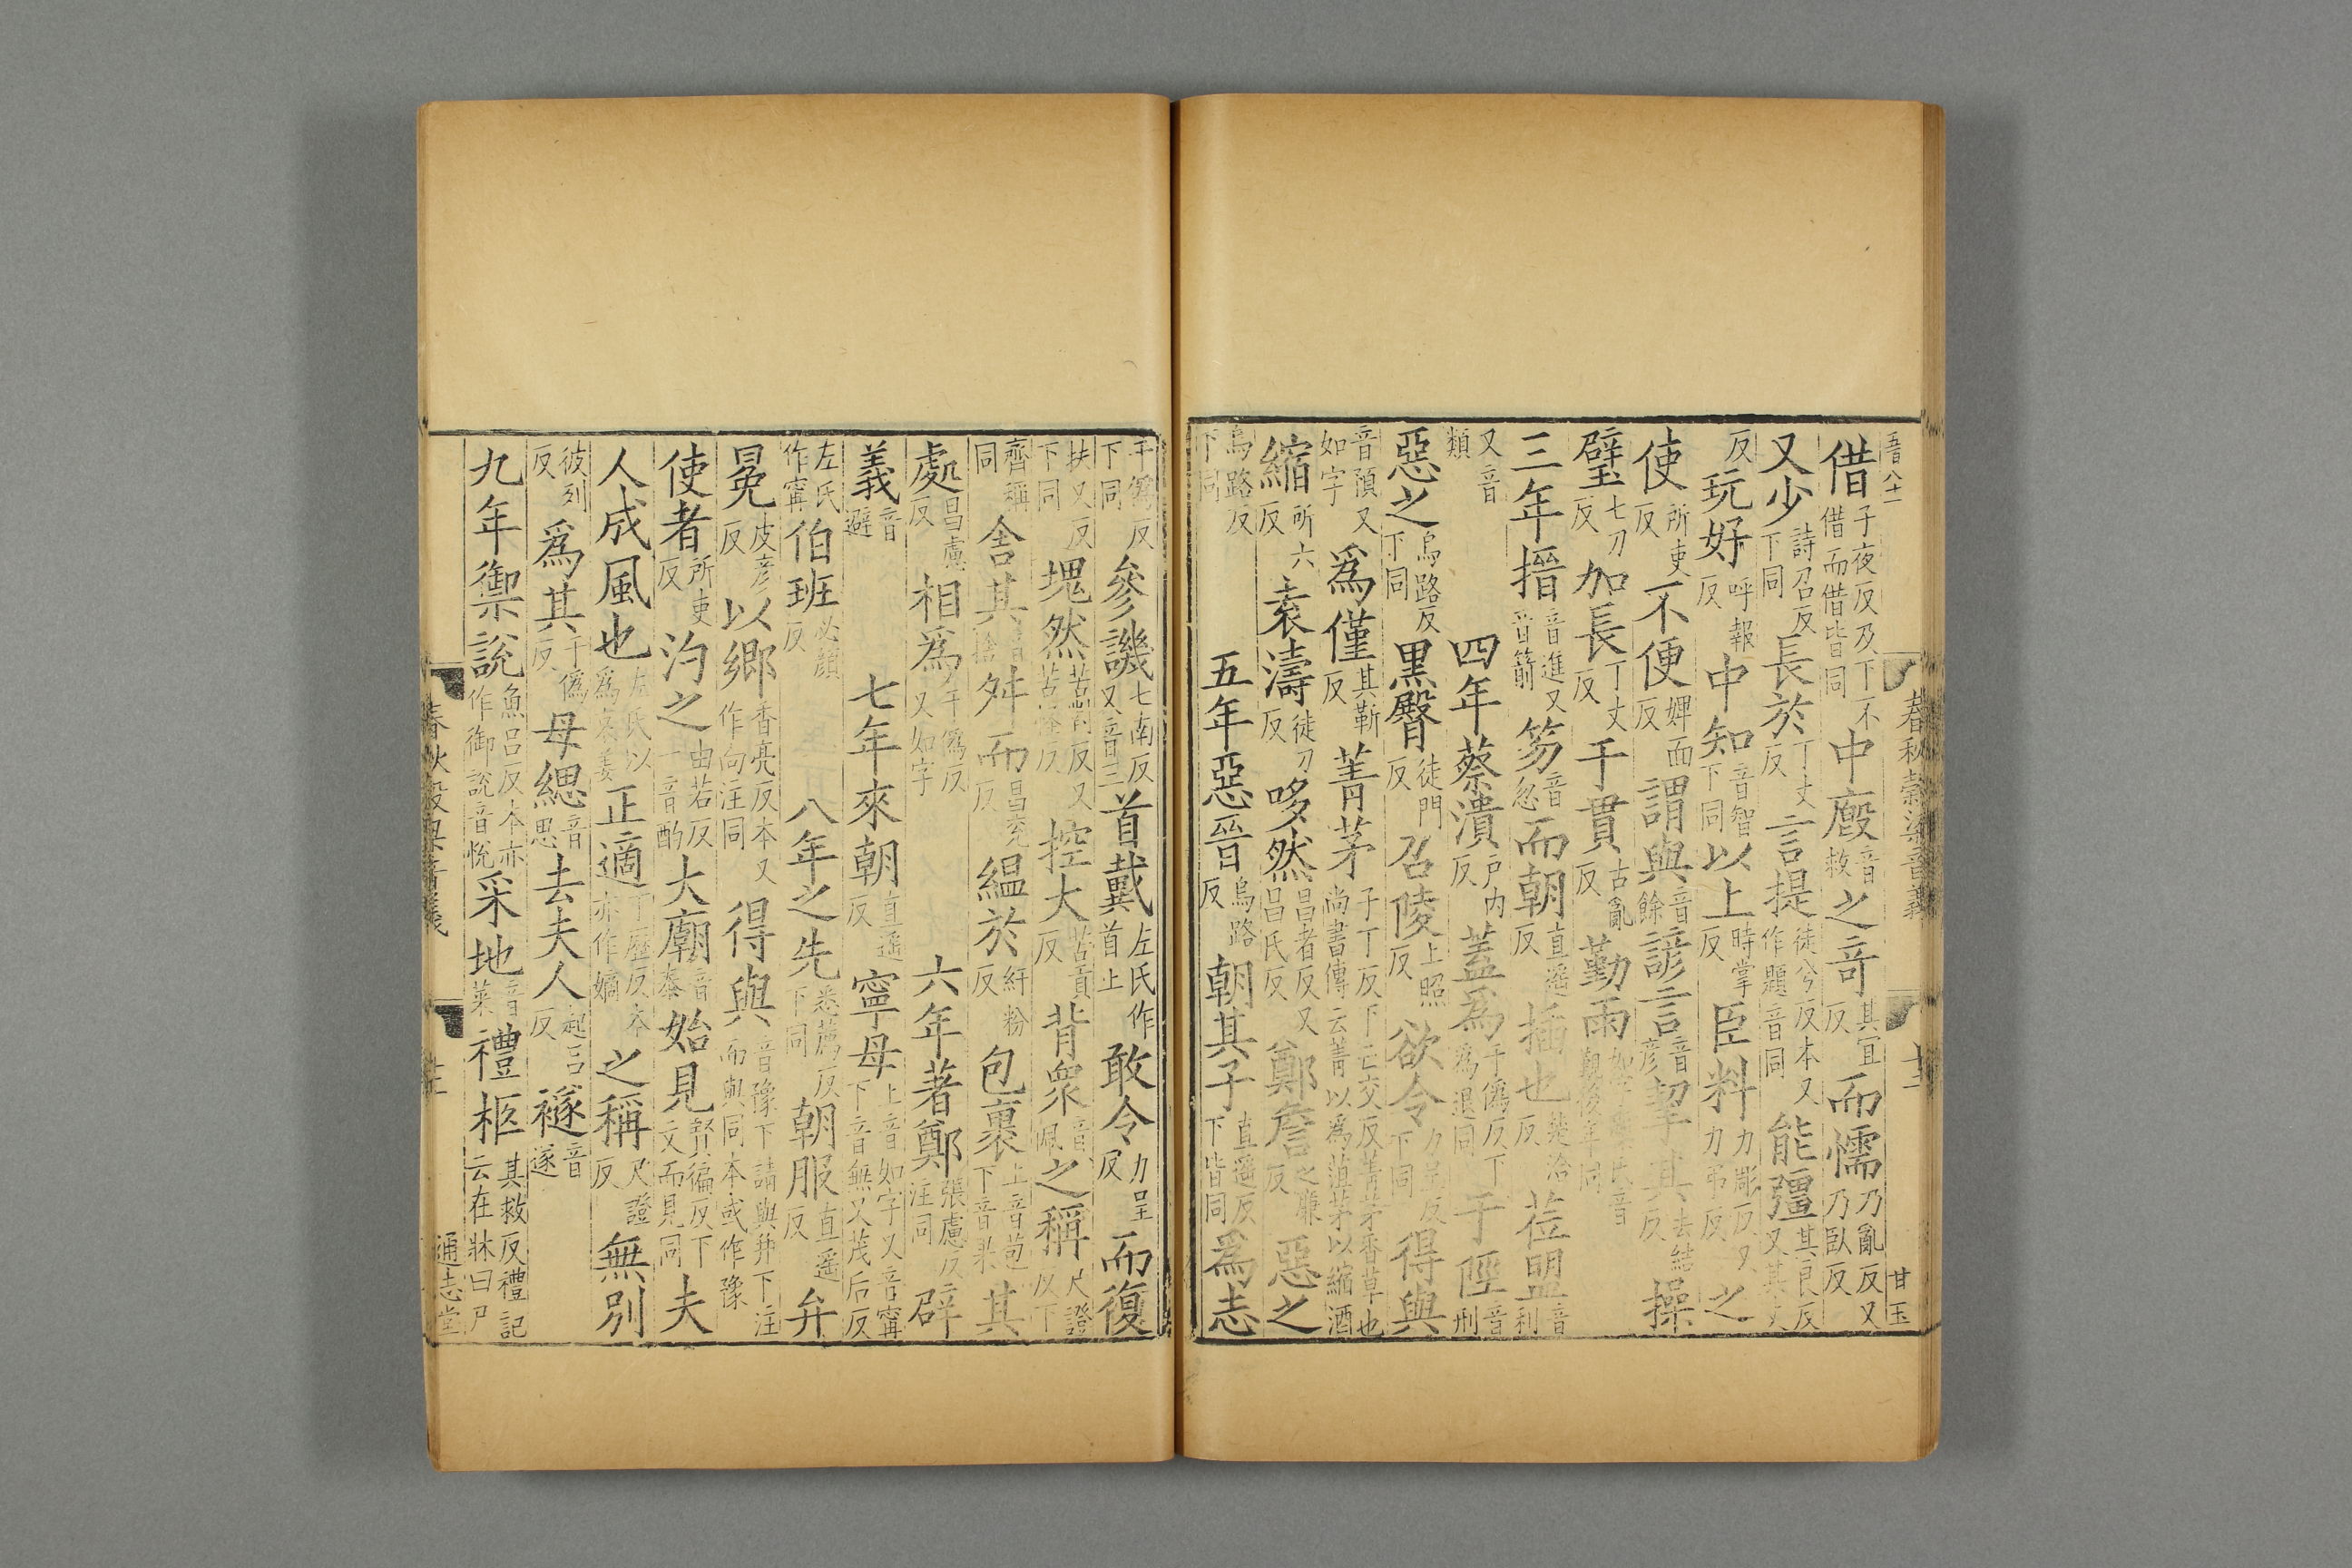 春秋穀梁音義
借子夜反乃下不借而借皆同中廏音救之奇其宜反而懦乃亂反又乃臥反
又少詩召反下同長於丁丈反言提徒兮反本又作題音同能彊其良反又其丈
反玩好呼報反中知音智下同以上時掌反臣料力彫反又力弔反之
使所吏反不便婢面反謂與音餘諺言音彥挈其去結反操
璧七刀反加長丁丈反于貫古亂反勤雨
三年搢音進又音箭笏音忽而朝直遥反插也楚洽反莅盟音利
又音類四年蔡潰户内反蓋爲于僞反下爲退同于陘音刑
惡之烏路反下同黒臀徒門反召陵上照反欲令力呈反下同得與
音預又如字爲僅其靳反菁茅子丁反下亡交反菁茅香草也尚書傳云菁以爲菹茅以縮酒
縮所六反袁濤徒刀反哆然昌者反又昌氏反鄭詹之廉反惡之
烏路反下同五年惡晉烏路反朝其子直遥反下皆同爲志
于僞反下同參譏七南反又音三首戴左氏作首止敢令力呈反而復
扶又反下同塊然苦對反又苦怪反控大苦貢反背衆音佩之稱尺證反以下
齊稱同舍其音捨舛而昌兖反緼於紆粉反包裹上音苞下音果其
處昌慮反相爲于僞反又如字六年著鄭張慮反注同辟
義音避七年來朝直遥反寧母上音如字又音甯下音無又茂后反
左氏作甯伯班必顔反八年之先悉薦反下同朝服直遥反弁
冕皮彦反以鄉香亮反本又作向注同得與音豫下請與并下注而與同本或作豫
使者所吏反汋之由若反一音酌大廟音泰始見賢徧反下文而見同夫
人成風也左氏以爲哀姜正適丁歷反本亦作嫡之稱尺證反無別
彼列反爲其于僞反母緦音思去夫人起吕反襚音遂
九年禦説魚吕反本亦作御説音悦采地音菜禮柩其救反禮記云在牀曰尸
春秋穀梁音義
通志堂